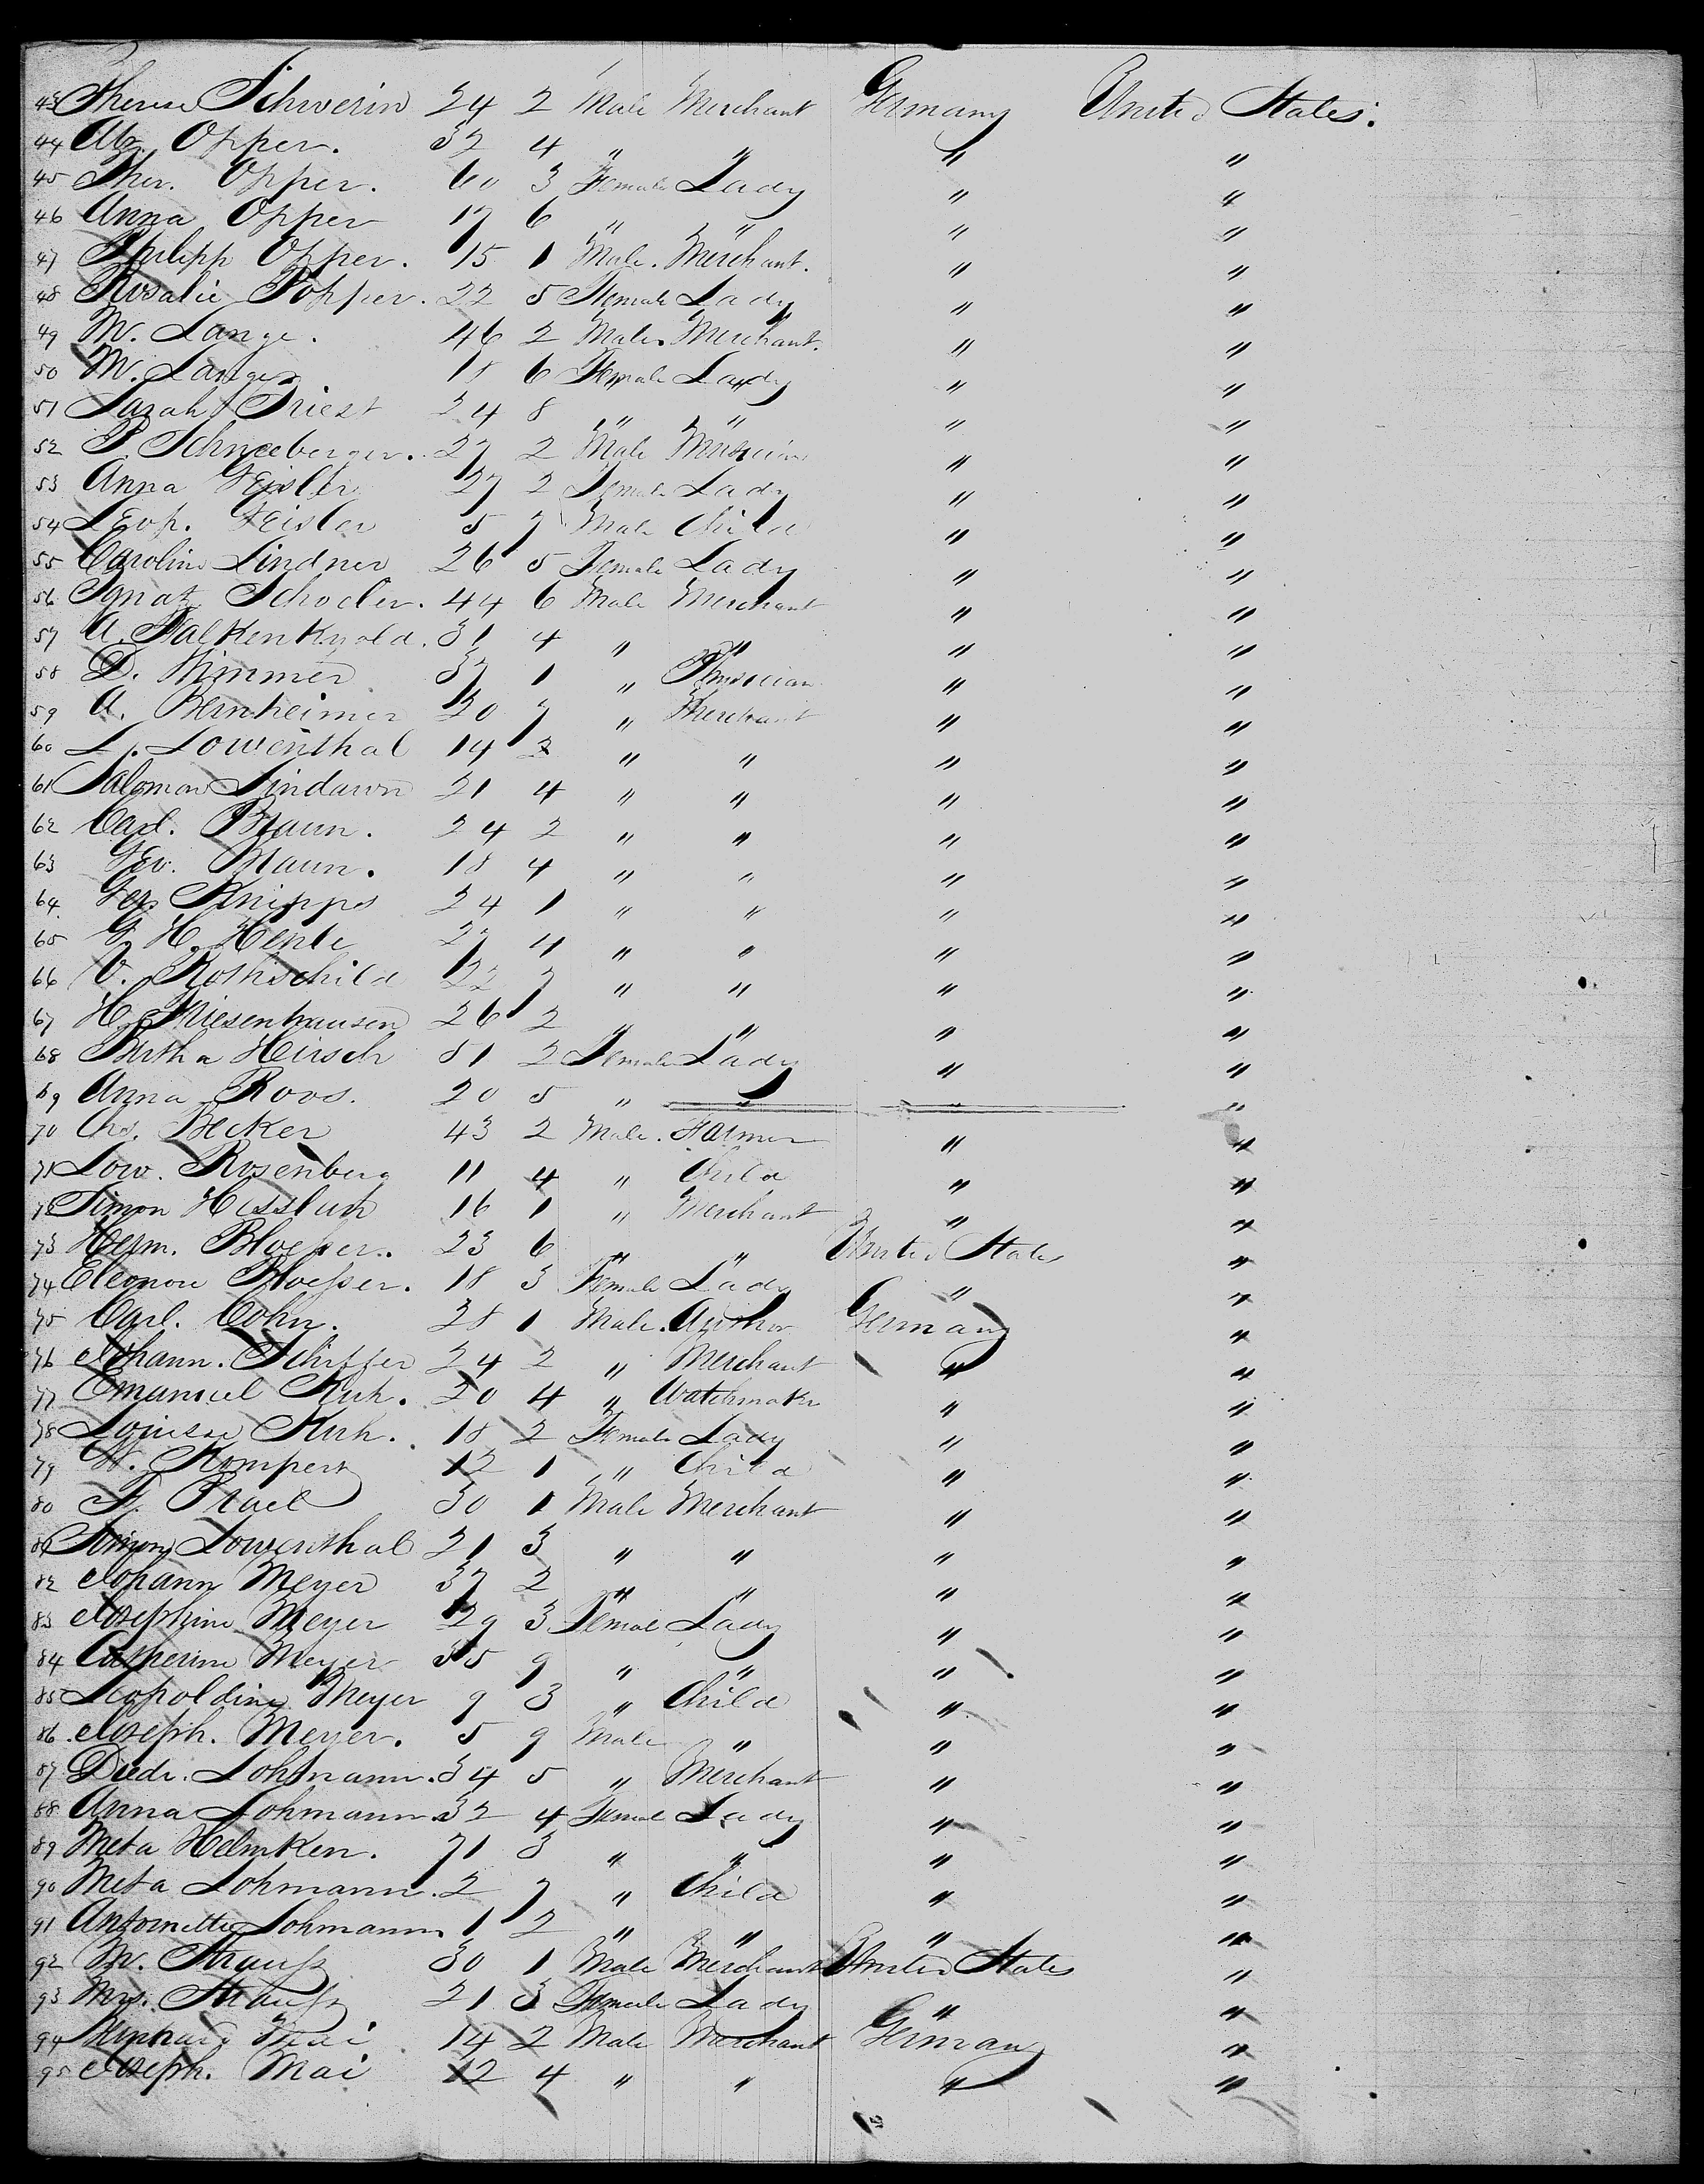 43 Therese Schwerin 24 2 Male Merchant Germany United States.
44 Opper. 32 4 " " " "
45 Ther. Opper. 60 3 Female Lady " "
46 Anna Opper 17 6 " " " "
47 Philipp Opper. 15 1 Male. Merchant. " "
48 Rosalie Popper. 22 5 Female Lady " "
49 M. Lange. 46 2 Male Merchant. " "
50 M. Lange 18 6 Female Lady " "
51 Sarah Triest 24 8 " " " "
52 P. Schneeberger. 27 2 Male Musician " "
53 Anna Geisler 27 2 Female Lady " "
54 Leop. Geisler 5 7 Male Child " "
55 Caroline Lindner 26 5 Female Lady " "
56 Ignatz Schocler. 44 6 Male Merchant " "
57 A. Falkenkyold. 31 4 " " " "
58 D. Wimmer 37 1 " Physician " "
59 A. Bernheimer 20 7 " Merchant " "
60 L. Lowenthal 14 2 " " " "
61 Salomon Lindawn 21 4 " " " "
62 Carl. Braun. 24 2 " " " "
63 Geo. Braun. 18 4 " " " "
64 Knipps 24 1 " " " "
65 G. H. Henle 27 4 " " " "
66 V. Rothschild 22 7 " " " "
67 H. Miesenhausen 26 2 " " " "
68 Bertha Hirsch 51 2 Female Lady " "
69 Anna Roos. 20 5 " " " "
70 Chs. Becker 43 2 Male. Farmer " "
71 Low. Rosenberg 11 4 " Child " "
72 Simon Hesslich 16 1 " Merchant " "
73 Herm. Bloesser. 23 6 " " United States "
74 Eleonore Bloesser. 18 3 Female Lady " "
75 Carl. Cohn. 28 1 Male. Author Germany "
76 Johann. Schiffer 24 2 " Merchant " "
77 Emanuel Kuh. 20 4 " Watchmaker " "
78 Louise Kuh. 18 2 Female Lady " "
79 W. Kompert 12 1 " Child " "
80 F. Prael 30 1 Male Merchant " "
81 Simon Lowenthal 21 3 " " " "
82 Johann Meyer 37 2 " " " "
83 Josephine Meyer 29 3 Female Lady " "
84 Catherine Meyer 35 9 " " " "
85 Leopoldine Meyer 9 3 " Child " "
86 Joseph. Meyer. 5 9 Male " " "
87 Diedr. Lohmann. 34 5 " Merchant " "
88 Anna Lohmann 32 4 Female Lady " "
89 Meta Helmken. 71 3 " " " "
90 Meta Lohmann. 2 7 " Child " "
91 Antoinette Lohmann 1 2 " " " "
92 M. Strauss 30 1 Male Merchant United States "
93 Mrs. Strauss 21 3 Female Lady " "
94 Mai 14 2 Male Merchant Germany "
95 Joseph. Mai 12 4 " " " "